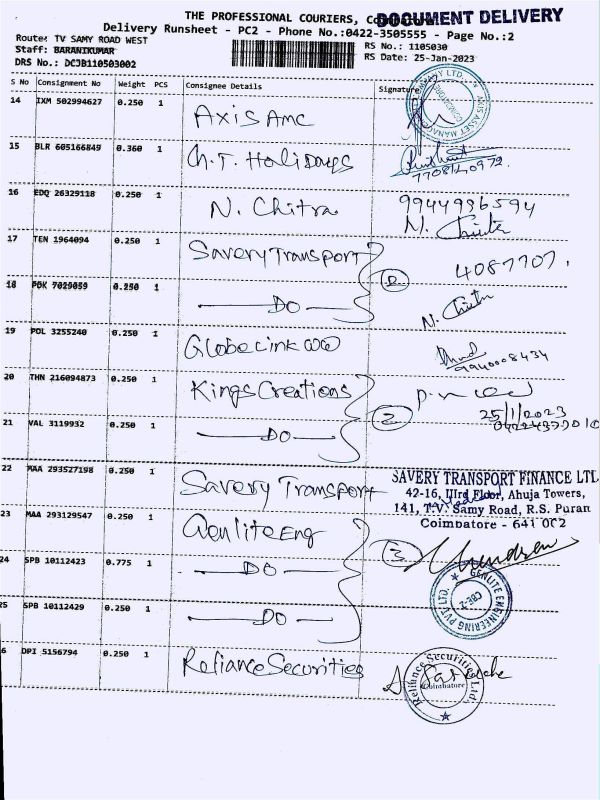 THE PROFESSIONAL COURIERS, Coimbatore
DOCUMENT DELIVERY
Delivery Runsheet - PC2 - Phone No.:0422-3505555 - Page No.:2
Route: TV SAMY ROAD WEST
RS No.: 1105030
Staff: BARANIKUMAR
RS Date: 25-Jan-2023
DRS No.: DCJB110503002
S No Consignment No Weight PCS Consignee Details Signature
14 IXM 502994627 0.250 1 Axis Amc
15 BLR 605166849 0.360 1 Ch.T. Holidays
7708140972
16 EDQ 26329118 0.250 1 N. Chitra 9944996594
N. Chitra
17 TEN 1964094 0.250 1 Savery Transport 4087707.
18 POK 7029059 0.250 1 DO 2 N. Chitra
19 POL 3255240 0.250 1 Globelink WW
9940008434
20 THN 216094873 0.250 1 Kings Creations
25/1/2023
21 VAL 3119932 0.250 1 DO 2
22 MAA 293527198 0.250 1 Savery Transport
SAVERY TRANSPORT FINANCE LTD
42-16, IIIrd Floor, Ahuja Towers,
141, T.V. Samy Road, R.S. Puran
Coimbatore - 641 002
23 MAA 293129547 0.250 1 Genlite Eng
24 SPB 10112423 0.775 1 DO 3
GENLITE ENGINEERING PVT LTD.
CBE-2
25 SPB 10112429 0.250 1 DO
26 DPI 5156794 0.250 1 Reliance Securities
Reliance Securities Ltd.
Coimbatore